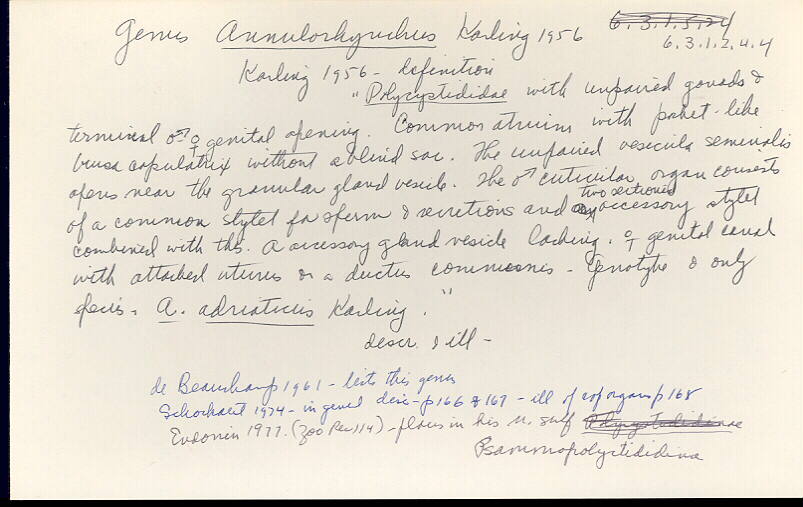 Genus Annulorhynchus Karling 1956 6.3.1.5.24
6.3.1.2.4.4
Karling 1956 - Definition
"Polycystididae with unpaired gonads &
terminal ♂♀ genital opening. Common atrium with poket-like
bursa copulatrix without a blind sac. The unpaired vesicula seminalis
opens near the granular gland vesicle. The ♂ cuticular organ consists
of a common stylet for sperm & secretions and two sectioned accessory stylet
combined with this. A accessory gland vesicle lacking. ♀ genital canal
with attached uterus or a ductus communis - Genotype & only
species - A. adriaticus Karling."
descr. & ill -
de Beauchamp 1961 - lists this genus
Schockaert 1974 - in genel disc - p 166 & 167 - ill of cop organ p 168
Evdonin 1977 (Zoo Rev 114) - places in his n. subf Polycystidinae
Psammopolycystidinae